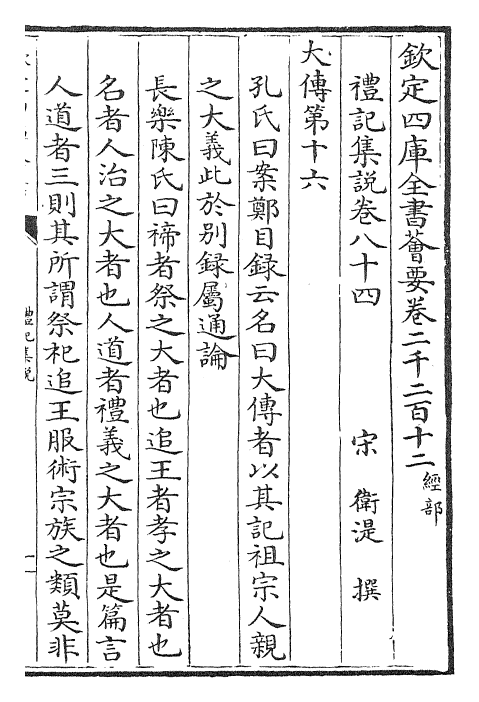 欽定四庫全書薈要卷二千二百十二經部
禮記集説卷八十四 宋 衛湜 撰
大傳第十六
孔氏曰案鄭目録云名曰大傳者以其記祖宗人親
之大義此於别録屬通論
長樂陳氏曰禘者祭之大者也追王者孝之大者也
名者人治之大者也人道者禮義之大者也是篇言
人道者三則其所謂祭祀追王服術宗族之類莫非
禮記集説
一